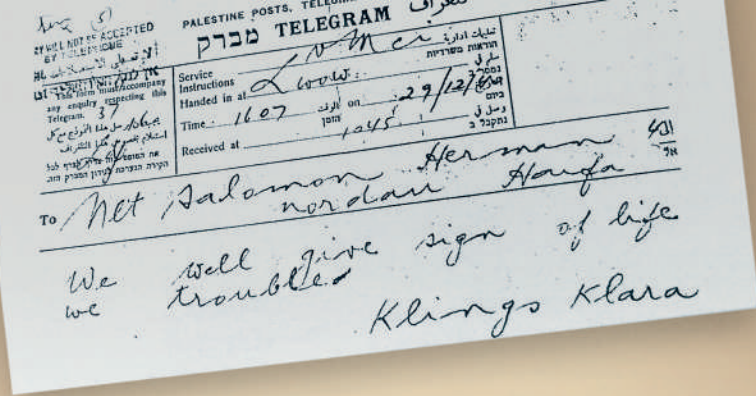 PALESTINE POSTS, TELEG
מברק TELEGRAM تلغراف
IT WILL NOT BE ACCEPTED
BY TELEPHONE
This form must accompany
any enquiry respecting this
Telegram.
37
Service
Instructions
تعليمات ادارية
הוראות משרדיות
Handed in at Lwow.
Time 1607 الوقت
הזמן
on 29/12/
ביום
Received at 1045
נתקבל ב
את הטופס
To Net Salomon Herman
אל
nordau Haifa
We well give sign of life
we troubled
Klings Klara